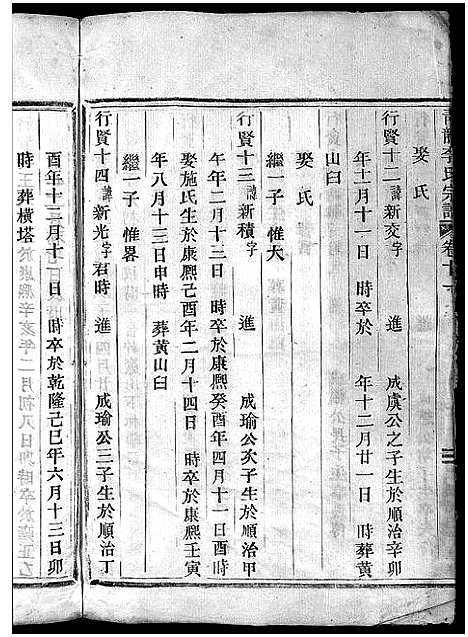 李氏宗譜
娶氏
行賢十二諱新交字　進　成虞公之子生於順治辛卯
年十二月十一日　時卒於　年十二月廿一日　時葬黄
山臼
娶氏
行賢十三諱新積字　進　成瑜公次子生於順治甲
午年二月十三日　時卒於康熙癸酉年四月十一日酉時
娶施氏生於康熙己酉年二月十四日　時卒於康熙壬寅
年八月十三日申時　葬黄山臼
繼一子　惟大
繼一子　惟畧
行賢十四諱新光字君時　進　成瑜公三子生於順治丁
酉年十二月十一日　時卒於乾隆己巳年六月十三日卯
時　葬横塔